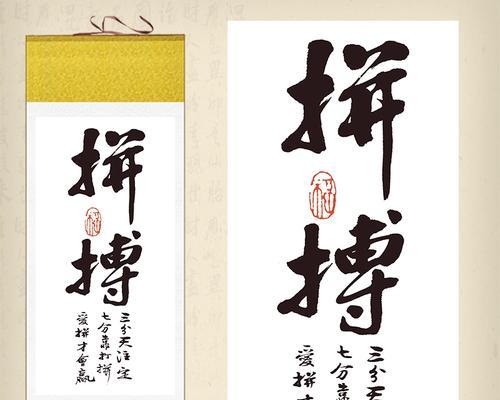 拼
搏
三分天注定
七分靠打拼
爱拼才会赢
拼
搏
三分天
七分靠
爱拼才